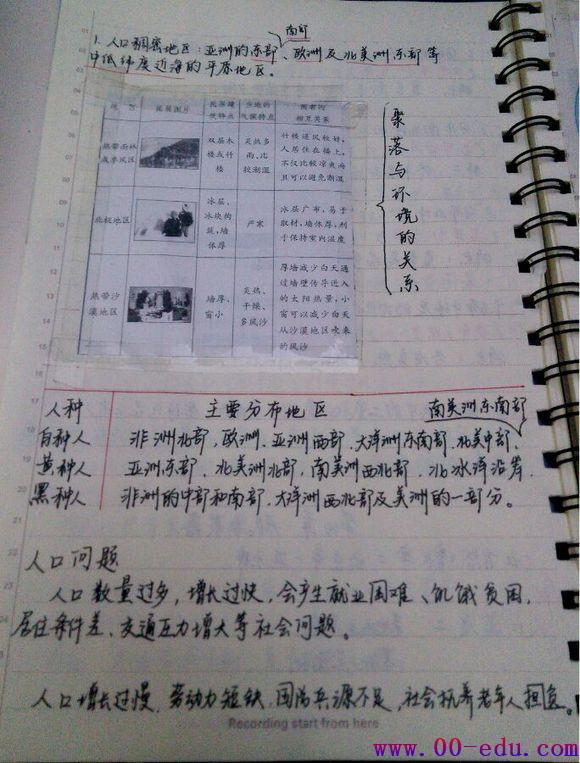 南部
1. 人口稠密地区：亚洲的东部、欧洲及北美洲东部等
中低纬度近海的平原地区。
地区 民居图片 民居建筑特点 当地的气候特点 两者的相互关系
热带雨林或季风区 双层木楼或竹楼 炎热多雨、比较潮湿 竹楼通风较好，人居住在楼上，不仅比较凉爽而且可以避免潮湿
北极地区 冰屋，冰块构筑，墙体厚 严寒 冰层广布，易于取材，墙体厚，利于保持室内温度
热带沙漠地区 墙厚、窗小 炎热、干燥、多风沙 厚墙减少白天通过墙壁传导进入的太阳热量，小窗可以减少白天从沙漠地区吹来的风沙
聚落与环境的关系
人种 主要分布地区 南美洲东南部
白种人 非洲北部，欧洲、亚洲西部、大洋洲东南部、北美中部、
黄种人 亚洲东部、北美洲北部，南美洲西北部、北冰洋沿岸，
黑种人 非洲的中部和南部、大洋洲西北部及美洲的一部分。
人口问题
人口数量过多，增长过快，会产生就业困难、饥饿贫困，
居住条件差、交通压力增大等社会问题。
人口增长过慢，劳动力短缺，国防兵源不足，社会抚养老年人担
Recording start from here
www.00-edu.com